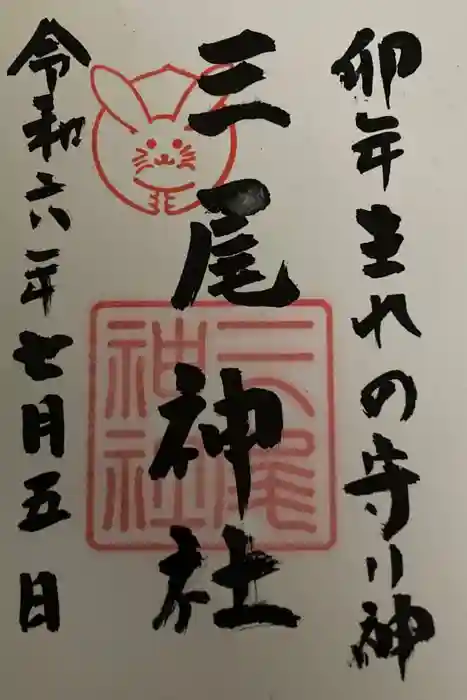 卯年生まれの守り神
三尾神社
令和六年七月五日
三尾
神社